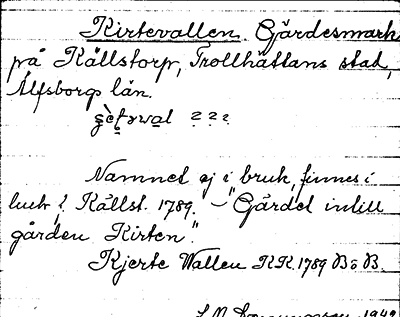 Kirtevallen. Gärdesmark
på Källstorp, Trollhättans stad,
Älfsborgs län.
???
Namnet ej i bruk, finnes i
Källst. 1789. – "Gärdet intill
gården Kirten".
Kjerte Wallen KK. 1789 BöB.